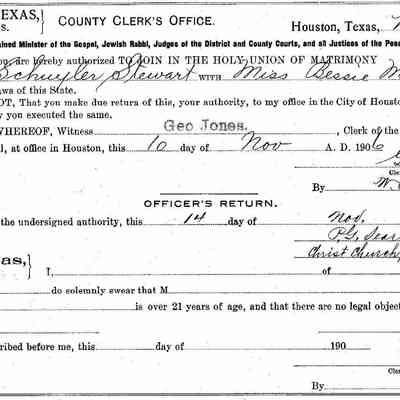 TEXAS, COUNTY CLERK'S OFFICE.
s. Houston, Texas,
ained Minister of the Gospel, Jewish Rabbi, Judges of the District and County Courts, and all Justices of the Peac
ou, are hereby authorized TO JOIN IN THE HOLY UNION OF MATRIMONY
Schuyler Stewart WITH Miss Bessie M
aws of this State.
OT, That you make due return of this, your authority, to my office in the City of Houston
y you executed the same.
WHEREOF, Witness Geo Jones. Clerk of the
l, at office in Houston, this 10 day of Nov A. D. 1906
By W.
OFFICER'S RETURN.
the undersigned authority, this 14 day of Nov.
P.G. Sear
as, Christ Church
I, of
do solemnly swear that M
is over 21 years of age, and that there are no legal objec
cribed before me, this day of 190
Cler
By